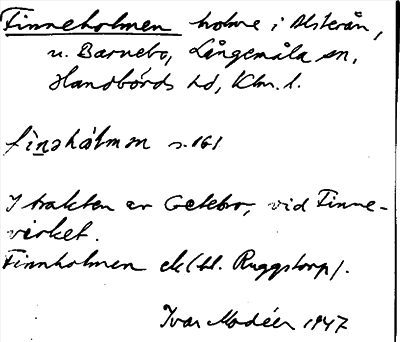 Finneholmen holme i Alsterån,
u. Barnebo, Långemåla sn,
Handbörds hd, Klm. l.
fìnəhálmən s. 161
I trakten av Getebro, vid Finne-
virket.
Finnholmen ek (bl. Ruggstorp).
Ivar Modéer 1947